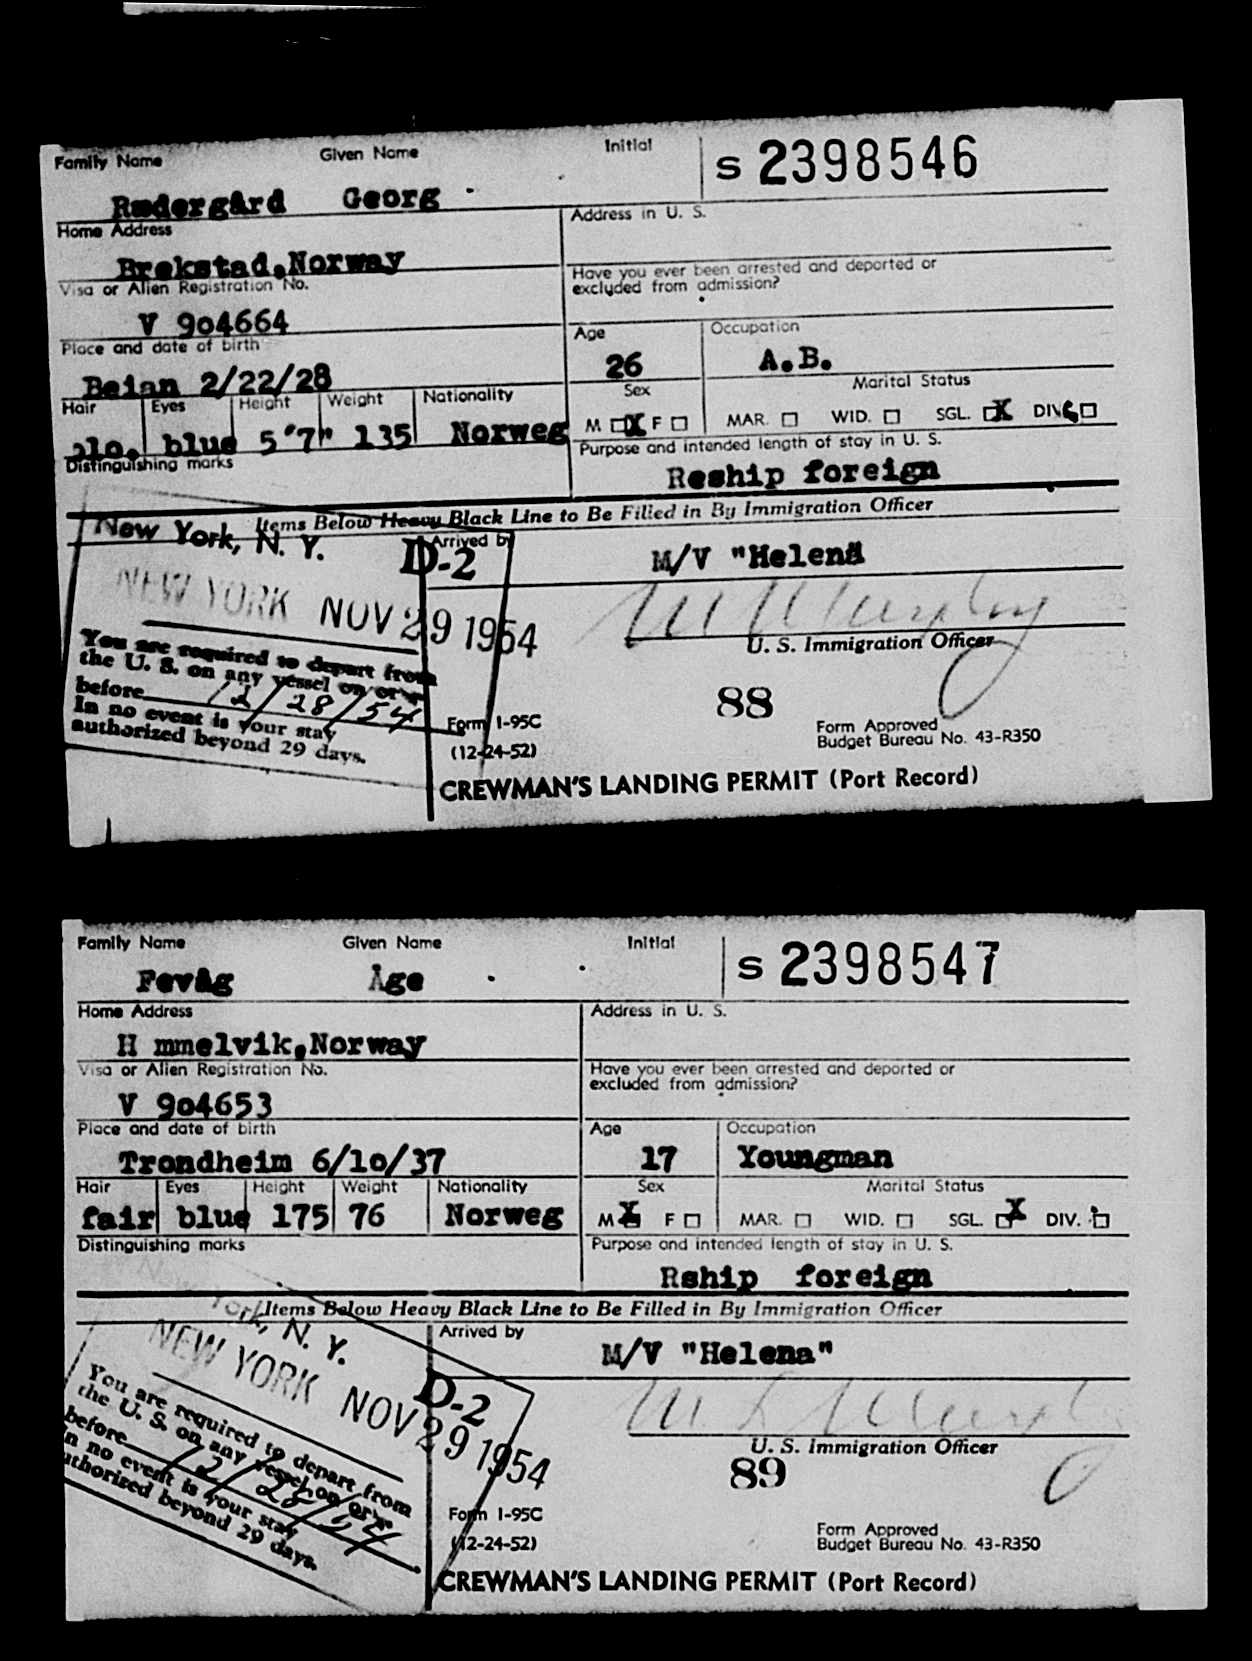 Family Name Given Name Initial S 2398546
Rødergård Georg
Home Address Address in U. S.
Brekstad,Norway
Visa or Alien Registration No. Have you ever been arrested and deported or
excluded from admission?
V 9o4664
Place and date of birth Age Occupation
Beian 2/22/28 26 A.B.
Hair Eyes Height Weight Nationality Sex Marital Status
blo. blue 5"7" 135 Norweg M X F MAR. WID. SGL. X DIV.
Distinguishing marks Purpose and intended length of stay in U. S.
Reship foreign
Items Below Heavy Black Line to Be Filled in By Immigration Officer
New York, N. Y. D-2 Arrived by M/V "Helena
NEW YORK NOV 29 1954
You are required to depart from
the U. S. on any vessel on or
before 12/28/54
In no event is your stay
authorized beyond 29 days.
U. S. Immigration Officer
88
Form I-95C Form Approved
(12-24-52) Budget Bureau No. 43-R350
CREWMAN'S LANDING PERMIT (Port Record)
Family Name Given Name Initial S 2398547
Fevåg Åge
Home Address Address in U. S.
H mmelvik,Norway
Visa or Alien Registration No. Have you ever been arrested and deported or
excluded from admission?
V 9o4653
Place and date of birth Age Occupation
Trondheim 6/1o/37 17 Youngman
Hair Eyes Height Weight Nationality Sex Marital Status
fair blue 175 76 Norweg M X F MAR. WID. SGL. X DIV.
Distinguishing marks Purpose and intended length of stay in U. S.
Rship foreign
Items Below Heavy Black Line to Be Filled in By Immigration Officer
New York, N. Y. Arrived by M/V "Helena"
NEW YORK NOV 29 1954 D-2
You are required to depart from
the U. S. on any vessel on or
before 12/28/54
n no event is your stay
uthorized beyond 29 days.
U. S. Immigration Officer
89
Form I-95C Form Approved
(12-24-52) Budget Bureau No. 43-R350
CREWMAN'S LANDING PERMIT (Port Record)